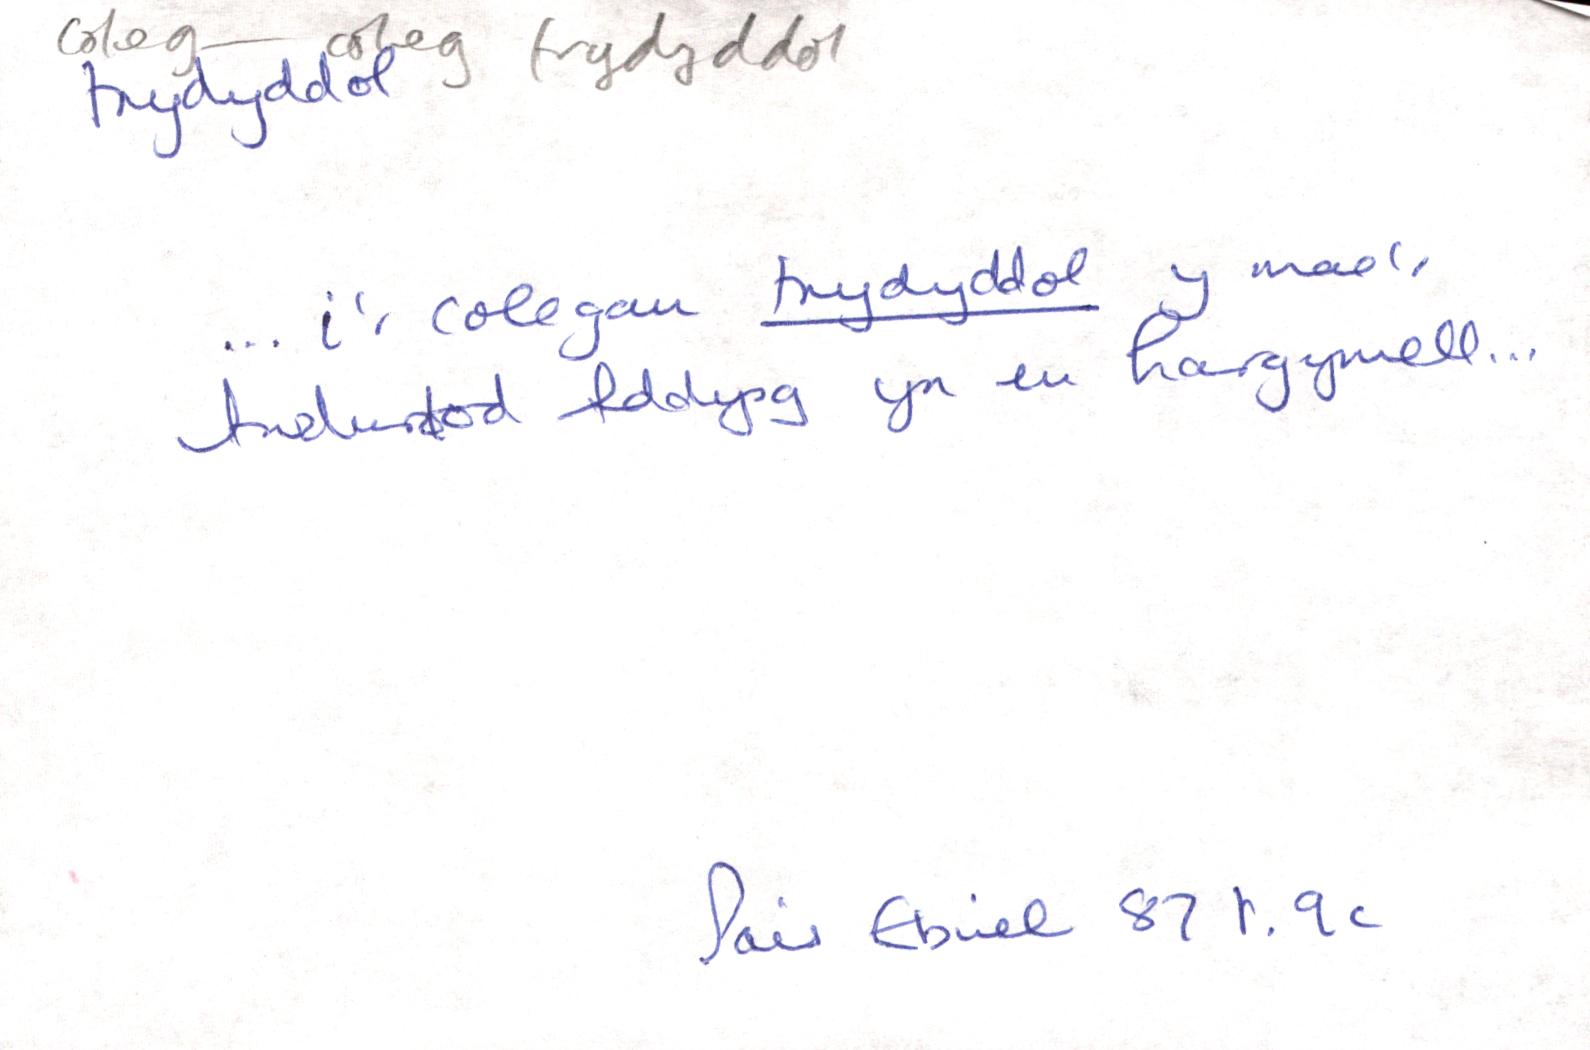 coleg — coleg trydyddol
trydyddol
... i'r colegau trydyddol y mae'r
Awdurdod Addysg yn eu hargymell...
Pais Ebrill 87 t. 9c